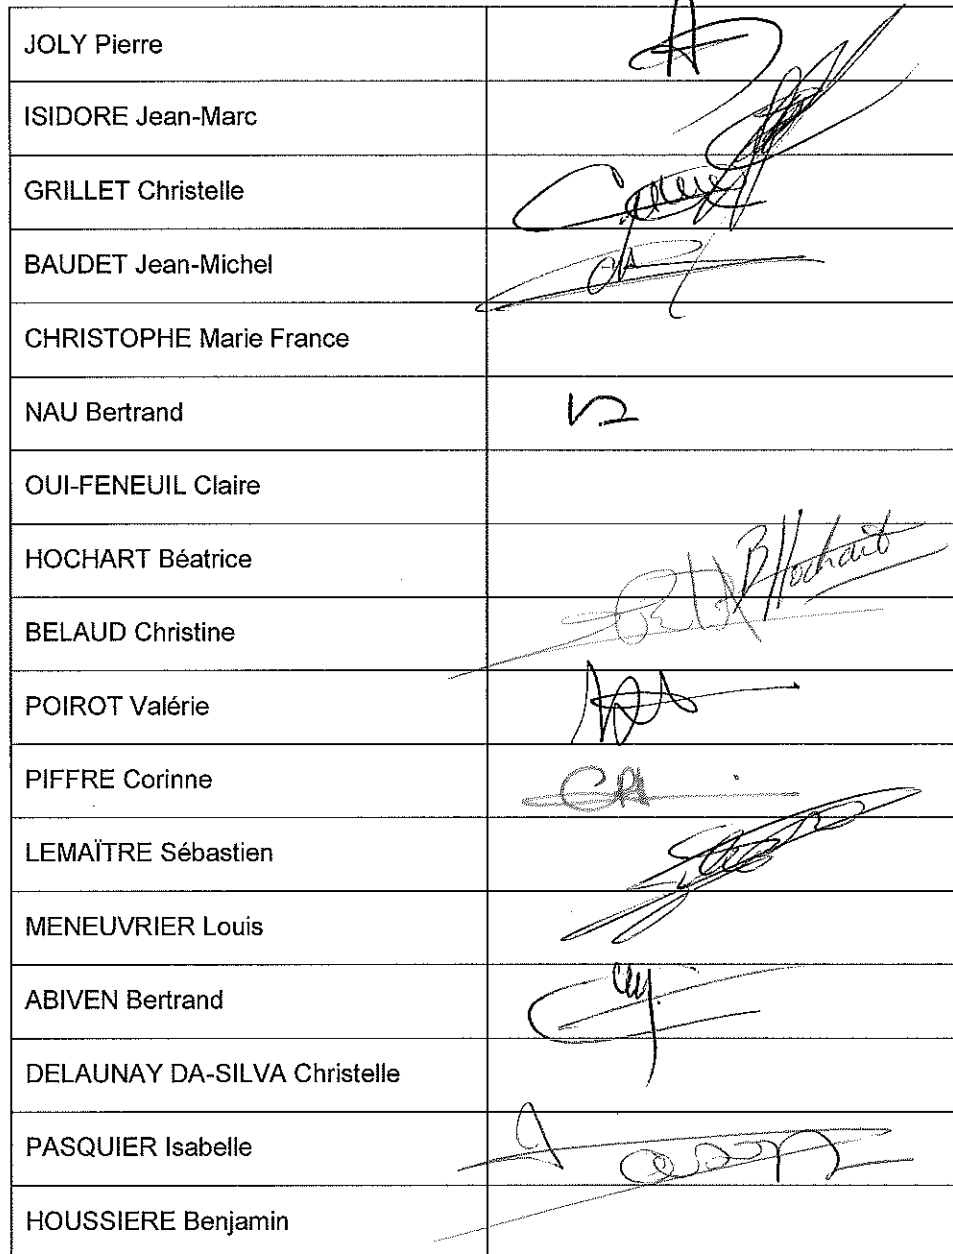 JOLY Pierre
ISIDORE Jean-Marc
GRILLET Christelle
BAUDET Jean-Michel
CHRISTOPHE Marie France
NAU Bertrand
OUI-FENEUIL Claire
HOCHART Béatrice
BHochart
BELAUD Christine
POIROT Valérie
PIFFRE Corinne
LEMAÏTRE Sébastien
MENEUVRIER Louis
ABIVEN Bertrand
DELAUNAY DA-SILVA Christelle
PASQUIER Isabelle
HOUSSIERE Benjamin